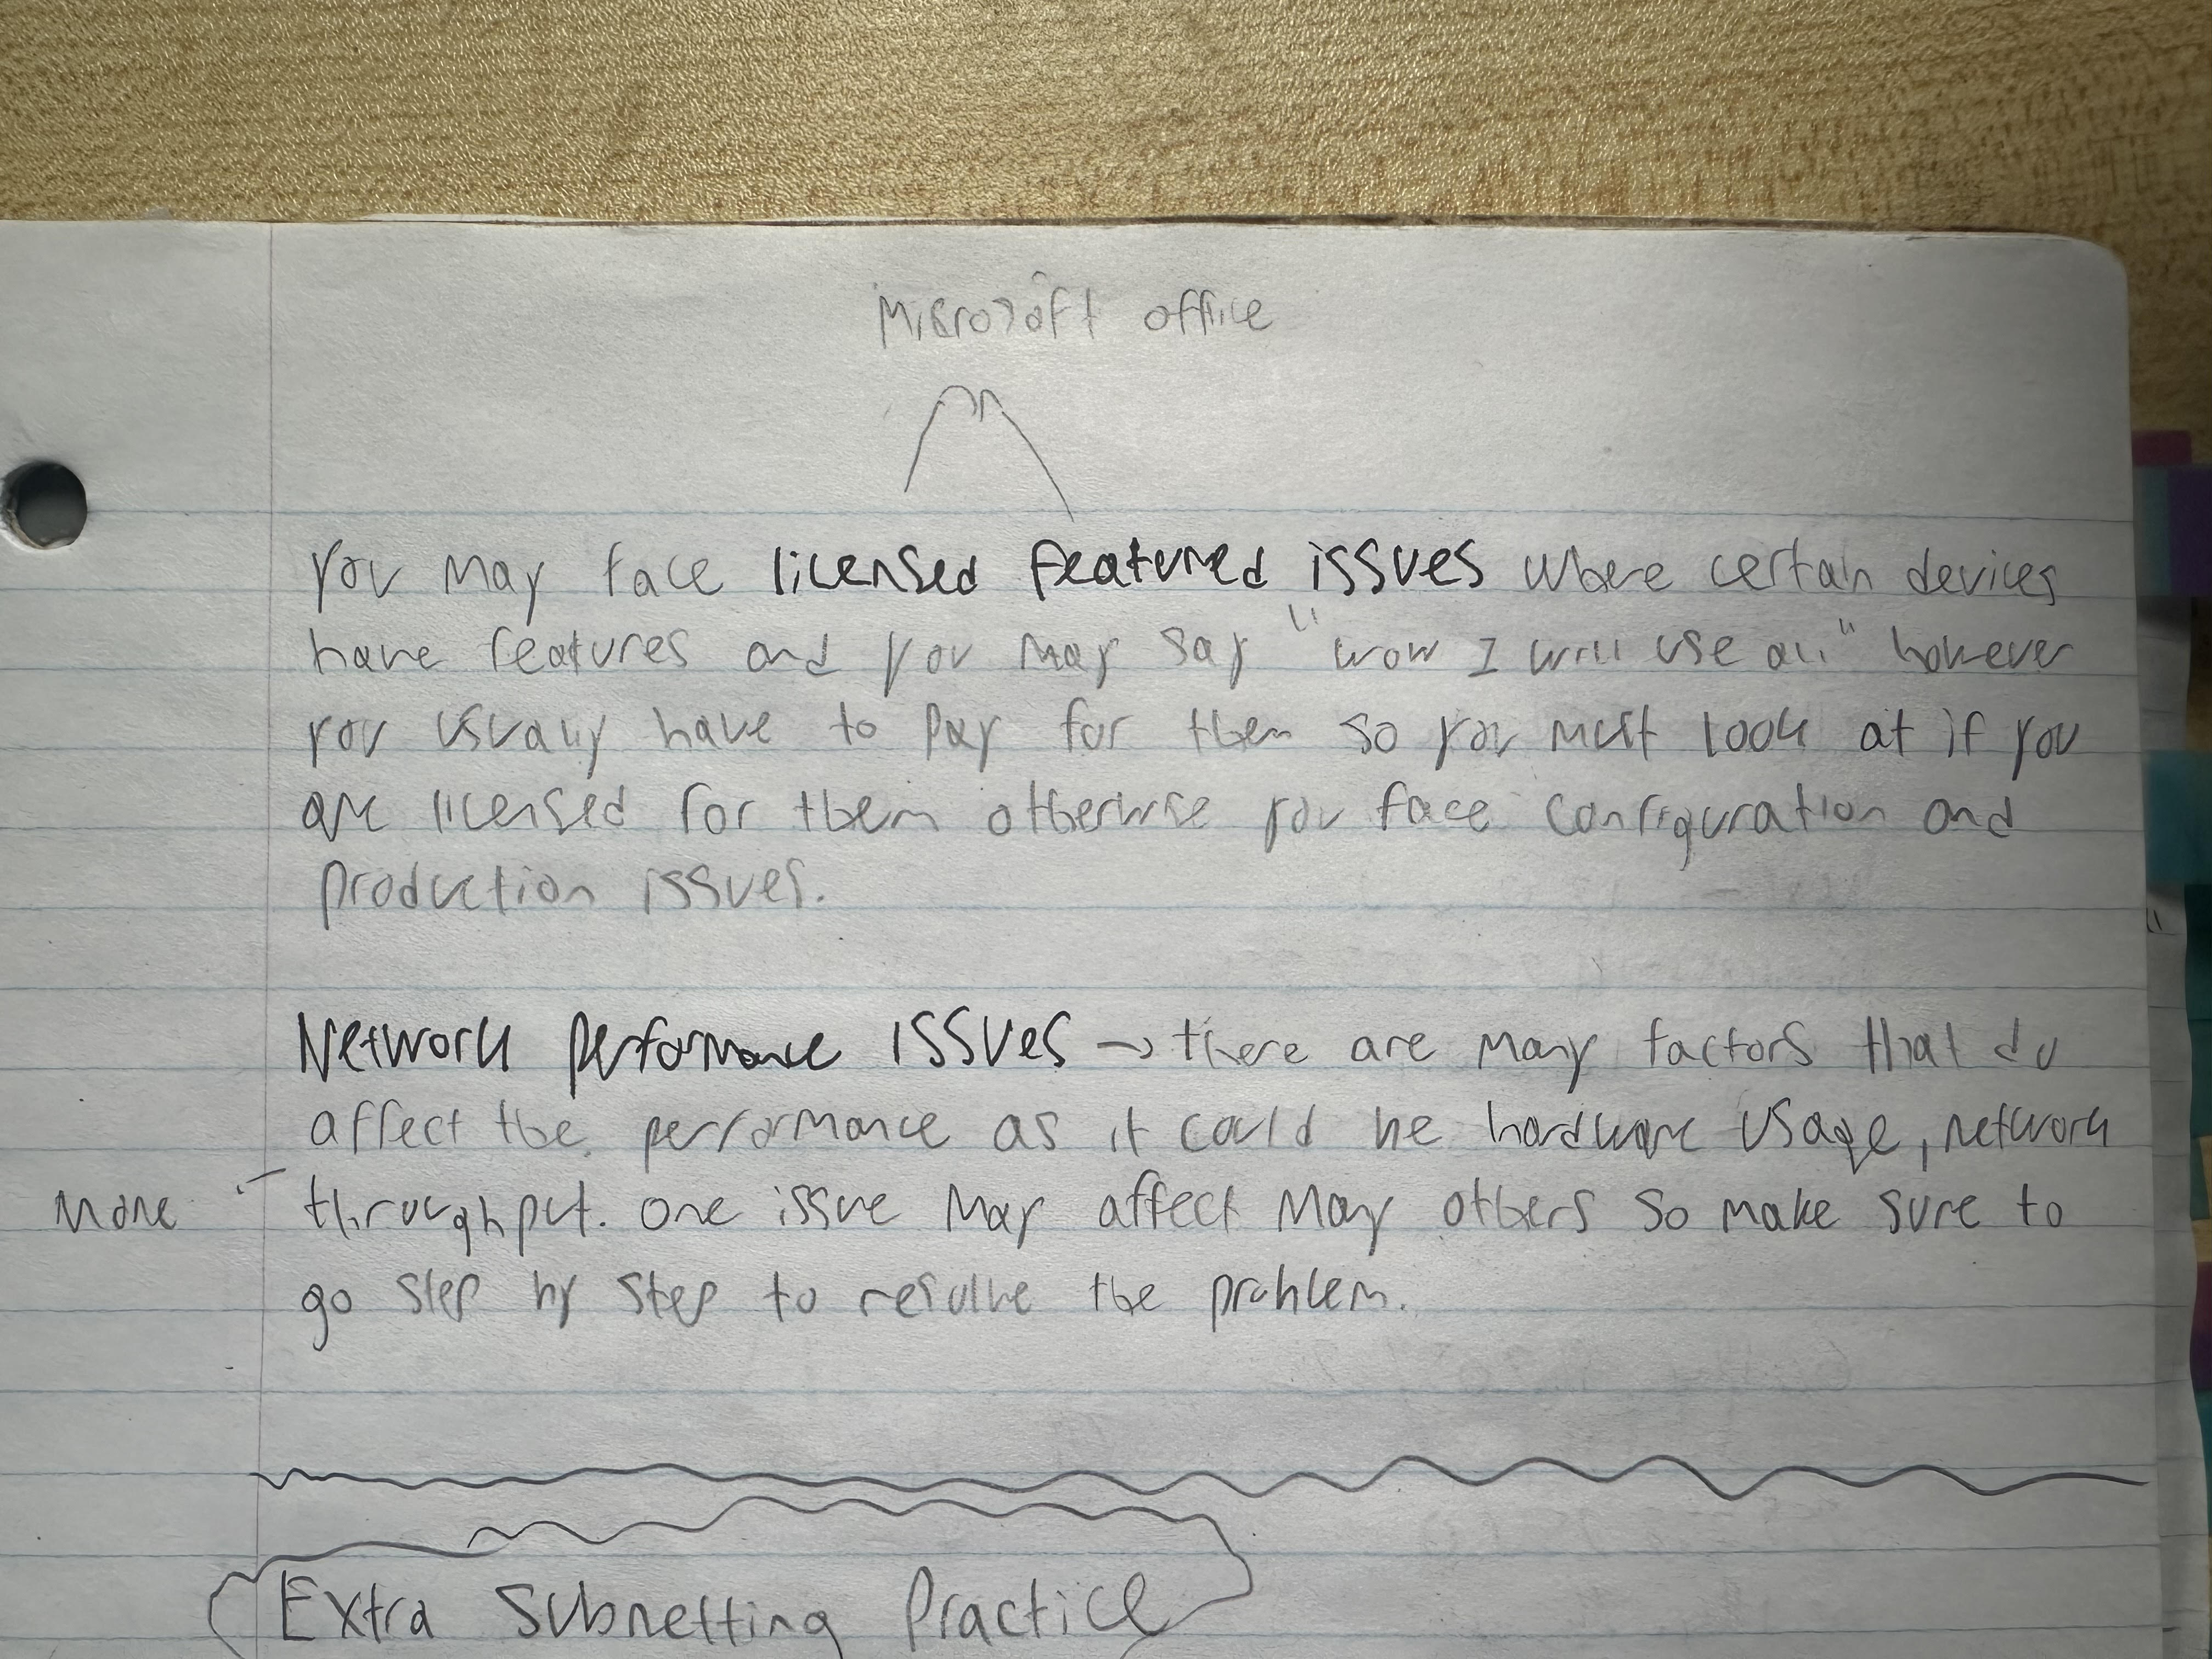 Microsoft office
you may face licensed featured issues where certain devices
have features and you may say "wow I will use all" however
you usually have to pay for them so you must look at if you
are licensed for them otherwise you face configuration and
production issues.
Network performance issues → there are many factors that do
affect the performance as it could be hardware usage, network
more throughput. one issue may affect many others so make sure to
go step by step to resolve the problem.
Extra Subnetting Practice